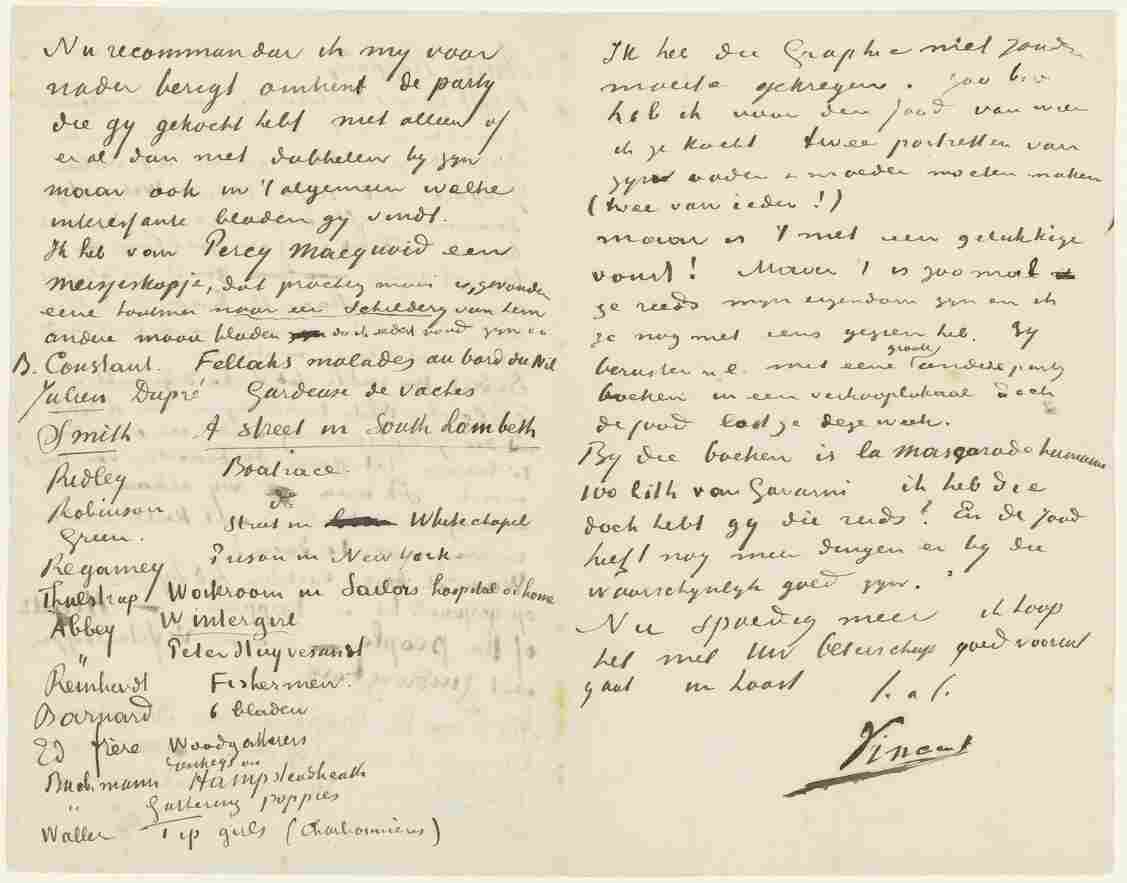 Nu recommandeer ik my voor
nader berigt omtrent de party
die gy gekocht hebt niet alleen of
er al dan niet dubbelen by zyn
maar ook in 't algemeen welke
interessante bladen gy vindt.
Ik heb van Percy Macquoid een
meisjeskopje, dat prachtig mooi is, gevonden
eene houtsnee naar een Schildery van hem
andere mooie bladen doch zullen oud zyn
B. Constant. Fellahs malades au bord du Nil
Julien Dupré Gardeuse de vaches
Smith A street in South Lambeth
Ridley Boatrace.
Robinson do
Green. Street in Whitechapel
Regamey Prison in New York
Thulstrup Workroom in Sailors hospital or home
Abbey Wintergirl
" Peter Stuyvesandt
Reinhardt Fishermen.
Barnard 6 bladen
Ed frère Woodgatherers
Buckmann Hampsteadheath
" Gathering poppies
Waller Tip girls (Charbonnières)
Ik heb die Graphic niet zonder
moeite gekregen. zoo
heb ik voor den jood van wien
ik ze kocht twee portretten van
zyn vader & moeder moeten maken
(twee van ieder!)
maar is 't niet een gelukkige
vondst! Maar 't is zoo mal
ze reeds myn eigendom zyn en ik
ze nog niet eens gezien heb. Zy
berusten n.l. met eene groote andere party
boeken in een verkooplokaal doch
de jood lost ze deze week.
By die boeken is la mascarade humaine
100 lith van Gavarni ik heb die
doch hebt gy die reeds? En de Jood
heeft nog meer dingen er by die
waarschynlyk goed zyn.
Nu spoedig meer ik hoop
het met Uw beterschap goed vooruit
gaat in haast t. a t.
Vincent